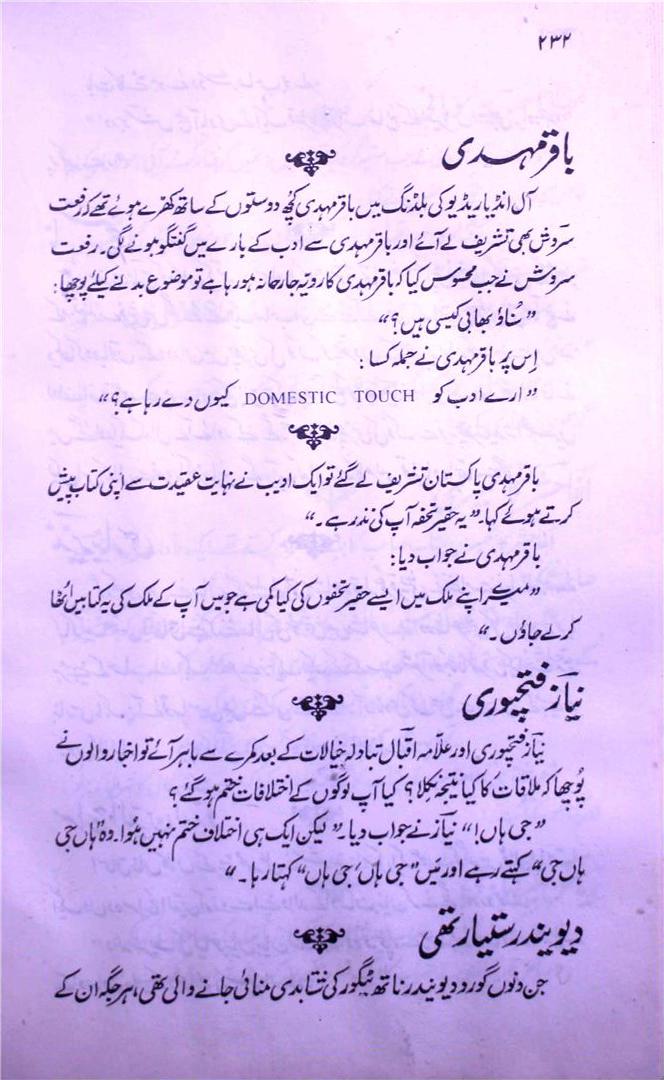 ۲۳۲
باقر مہدی
آل انڈیا ریڈیو کی بلڈنگ میں باقر مہدی کچھ دوستوں کے ساتھ کھڑے ہوئے تھے کہ رفعت
سروش بھی تشریف لے آئے اور باقر مہدی سے ادب کے بارے میں گفتگو ہونے لگی۔ رفعت
سروش نے جب محسوس کیا کہ باقر مہدی کا رویہ جارحانہ ہو رہا ہے تو موضوع بدلنے کیلئے پوچھا:
”سُناؤ بھابی کیسی ہیں؟“
اِس پر باقر مہدی نے جملہ کسا:
”ارے ادب کو DOMESTIC TOUCH کیوں دے رہا ہے؟“
باقر مہدی پاکستان تشریف لے گئے تو ایک ادیب نے نہایت عقیدت سے اپنی کتاب پیش
کرتے ہوئے کہا۔ ”یہ حقیر تحفہ آپ کی نذر ہے۔“
باقر مہدی نے جواب دیا:
”میرے اپنے ملک میں ایسے حقیر تحفوں کی کیا کمی ہے جو میں آپ کے ملک کی یہ کتابیں اُٹھا
کر لے جاؤں۔“
نیاز فتحپوری
نیاز فتحپوری اور علامہ اقبال تبادلہ خیالات کے بعد کمرے سے باہر آئے تو اخبار والوں نے
پُوچھا کہ ملاقات کا کیا نتیجہ نکلا؟ کیا آپ لوگوں کے اختلافات ختم ہو گئے؟
”جی ہاں!“ نیاز نے جواب دیا۔ ”لیکن ایک ہی اختلاف ختم نہیں ہُوا۔ وہ ”ہاں جی
ہاں جی“ کہتے رہے اور میں ”جی ہاں، جی ہاں“ کہتا رہا۔“
دیویندر ستیارتھی
جن دنوں گورو دیویندر ناتھ ٹیگور کی شتابدی منائی جانے والی تھی، ہر جگہ ان کے